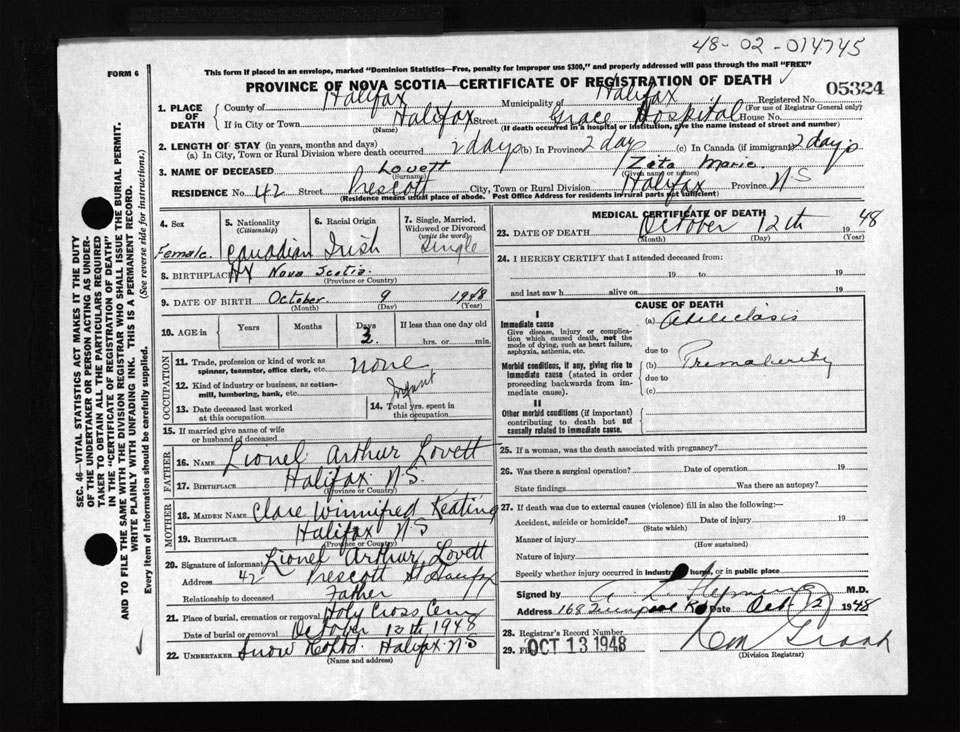 48-02-014745
FORM 6
This form if placed in an envelope, marked "Dominion Statistics—Free, penalty for improper use $300," and properly addressed will pass through the mail "FREE"
PROVINCE OF NOVA SCOTIA—CERTIFICATE OF REGISTRATION OF DEATH
05324
1. PLACE OF DEATH
County of Halifax Municipality of Halifax Registered No.
(For use of Registrar General only)
If in City or Town Halifax Street Grace Hospital House No.
(Name) (If death occurred in a hospital or institution, give the name instead of street and number)
2. LENGTH OF STAY (in years, months and days)
(a) In City, Town or Rural Division where death occurred 2 days (b) In Province 2 days (c) In Canada (if immigrant) 2 days
3. NAME OF DECEASED Lovett Zeta Marie
(Surname) (Given name or names)
RESIDENCE No. 42 Street Prescott City, Town or Rural Division Halifax Province NS
(Residence means usual place of abode. Post Office Address for residents in rural parts not sufficient)
4. Sex
Female
5. Nationality
(Citizenship)
Canadian
6. Racial Origin
Irish
7. Single, Married, Widowed or Divorced
(write the word)
Single
8. BIRTHPLACE Hx Nova Scotia
(Province or Country)
9. DATE OF BIRTH October 9 1948
(Month) (Day) (Year)
10. AGE in
Years
Months
Days
3
If less than one day old
hrs. or min.
OCCUPATION
11. Trade, profession or kind of work as spinner, teamster, office clerk, etc. none
12. Kind of industry or business, as cotton-mill, lumbering, bank, etc. Infant
13. Date deceased last worked at this occupation
14. Total yrs. spent in this occupation
15. If married give name of wife or husband of deceased
FATHER
16. NAME Lionel Arthur Lovett
17. BIRTHPLACE Halifax N.S.
(Province or Country)
MOTHER
18. MAIDEN NAME Clare Winnifred Keating
19. BIRTHPLACE Halifax NS
(Province or Country)
20. Signature of informant Lionel Arthur Lovett
Address 42 Prescott St Halifax
Relationship to deceased Father
21. Place of burial, cremation or removal Holy Cross Cem
Date of burial or removal October 13th 1948
22. UNDERTAKER Snow Halifax NS
(Name and address)
MEDICAL CERTIFICATE OF DEATH
23. DATE OF DEATH October 12th 1948
(Month) (Day) (Year)
24. I HEREBY CERTIFY that I attended deceased from:
19 to 19
and last saw h alive on 19
CAUSE OF DEATH
I
Immediate cause
Give disease, injury or complication which caused death, not the mode of dying, such as heart failure, asphyxia, asthenia, etc.
(a) Atelectasis
due to
Morbid conditions, if any, giving rise to immediate cause (stated in order proceeding backwards from immediate cause)
(b) Prematurity
due to
(c)
II
Other morbid conditions (if important) contributing to death but not causally related to immediate cause.
25. If a woman, was the death associated with pregnancy?
26. Was there a surgical operation? Date of operation 19
State findings Was there an autopsy?
27. If death was due to external causes (violence) fill in also the following:—
Accident, suicide or homicide? Date of injury 19
(State which)
Manner of injury
(How sustained)
Nature of injury
Specify whether injury occurred in industry, home, or in public place
Signed by M.D.
Address 168 Date Oct 12 1948
28. Registrar's Record Number
29. OCT 13 1948
(Division Registrar)
SEC. 46—VITAL STATISTICS ACT MAKES IT THE DUTY
OF THE UNDERTAKER OR PERSON ACTING AS UNDER-
TAKER TO OBTAIN ALL THE PARTICULARS REQUIRED
IN THE "CERTIFICATE OF REGISTRATION OF DEATH"
AND TO FILE THE SAME WITH THE DIVISION REGISTRAR WHO SHALL ISSUE THE BURIAL PERMIT.
WRITE PLAINLY WITH UNFADING INK. THIS IS A PERMANENT RECORD.
Every item of information should be carefully supplied. (See reverse side for instructions.)